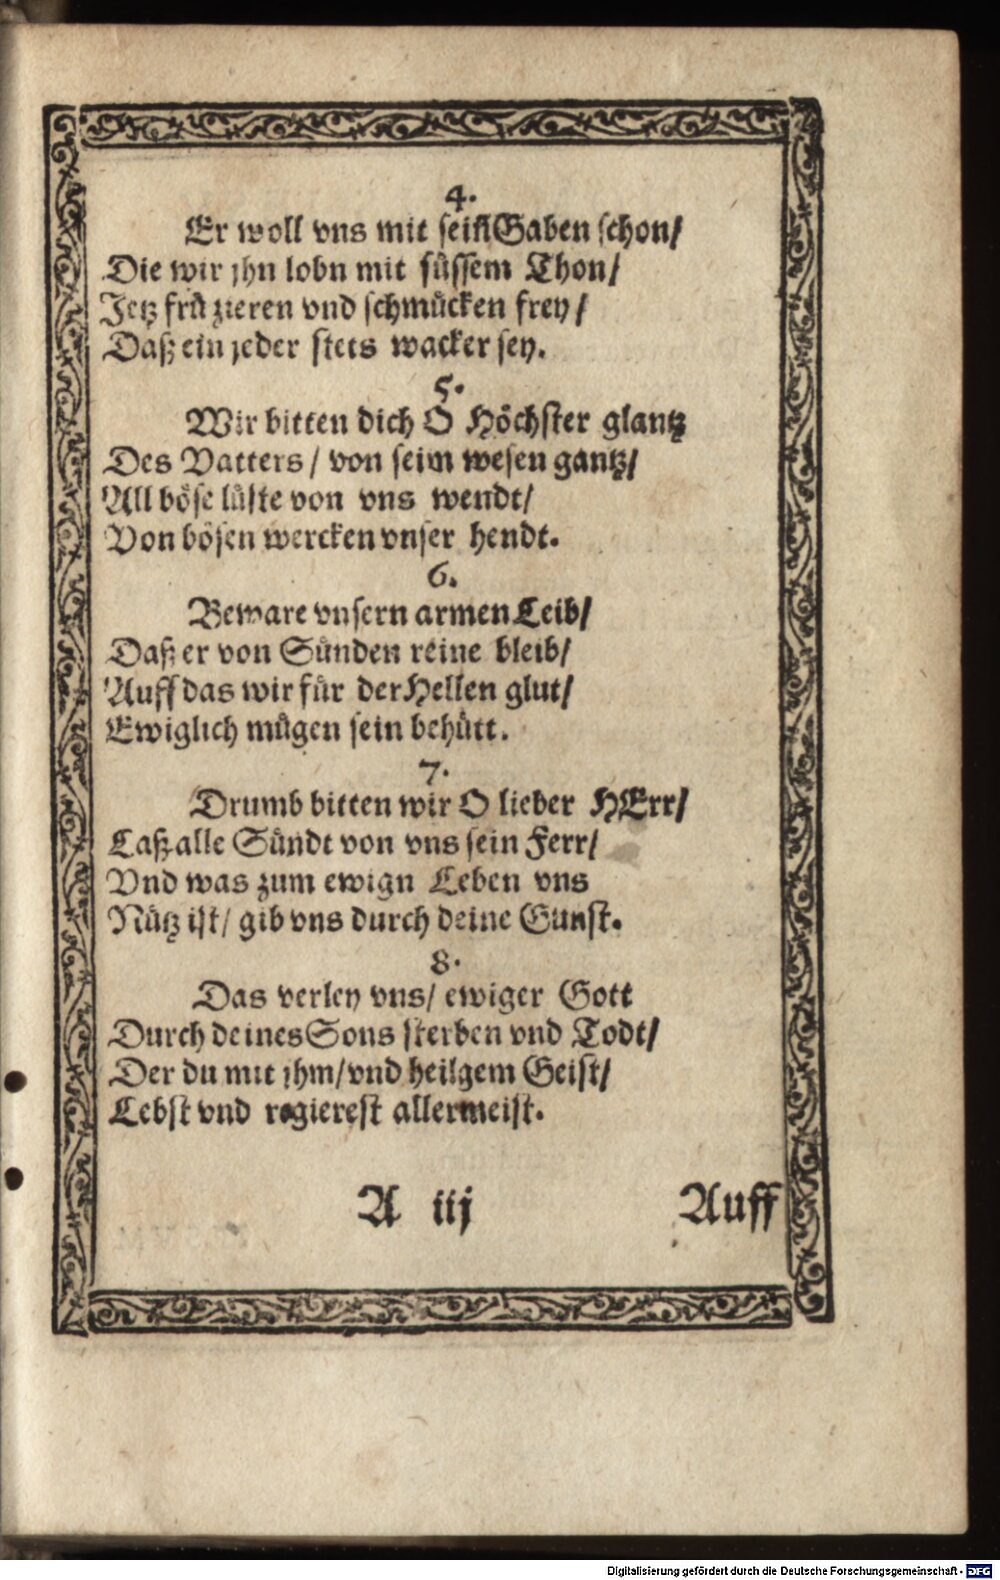 4.
Er woll vns mit seiñ Gaben schon/
Die wir jhn lobn mit süssem Thon/
Jetz frü zieren vnd schmücken frey/
Daß ein jeder stets wacker sey.
5.
Wir bitten dich O Höchster glantz
Des Vatters / von seim wesen gantz/
All böse lüste von vns wendt/
Von bösen wercken vnser hendt.
6.
Beware vnsern armen Leib/
Daß er von Sünden reine bleib/
Auff das wir für der Hellen glut/
Ewiglich mügen sein behütt.
7.
Drumb bitten wir O lieber HErr/
Laß alle Sündt von vns sein Ferr/
Vnd was zum ewign Leben vns
Nütz ist/ gib vns durch deine Gunst.
8.
Das verley vns/ ewiger Gott
Durch deines Sons sterben vnd Todt/
Der du mit jhm/vnd heilgem Geist/
Lebst vnd regierest allermeist.
A iij Auff
Digitalisierung gefördert durch die Deutsche Forschungsgemeinschaft - DFG